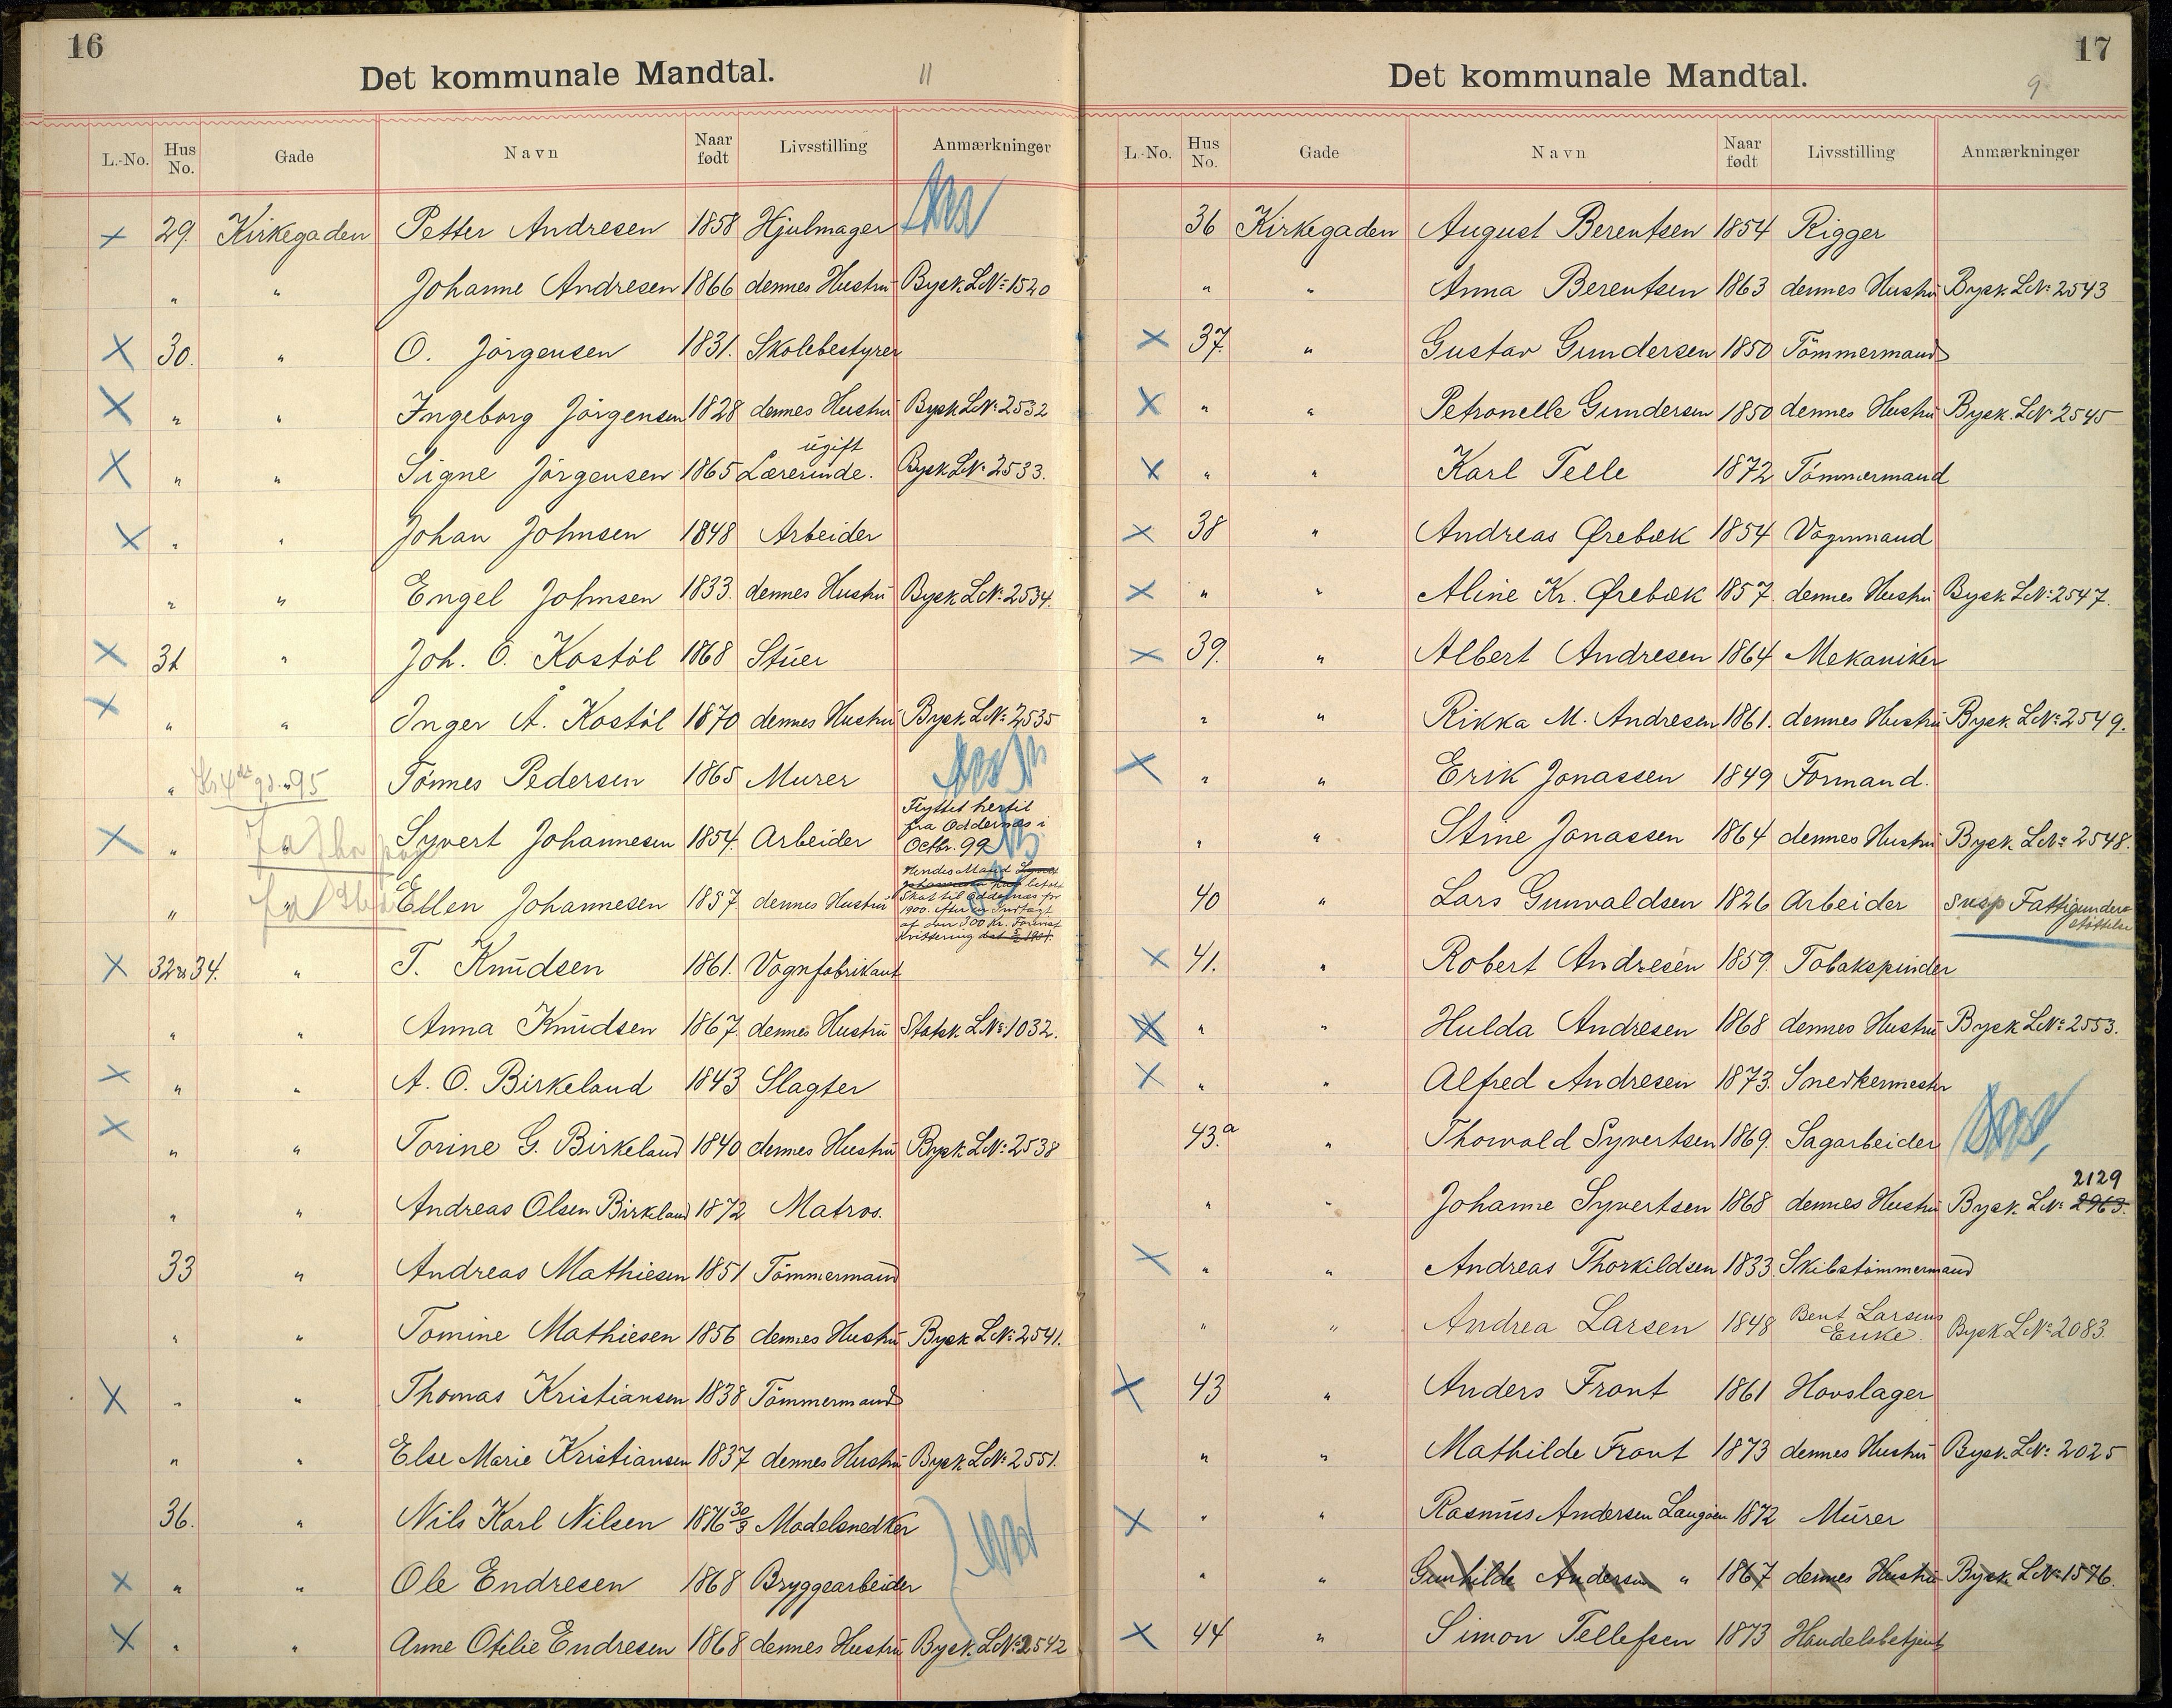 16
Det kommunale Mandtal.
11
L.-No. Hus No. Gade Navn Naar født Livsstilling Anmærkninger
29. Kirkegaden Petter Andresen 1858 Hjulmager
" " Johanne Andresen 1866 dennes Hustru Bysk LN: 1520
30. " O. Jörgensen 1831. Skolebestyrer
" " Ingeborg Jörgensen 1828 dennes Hustru Bysk LN: 2532
" " Signe Jörgensen 1865 ugift Lærerinde. Bysk LN: 2533.
" " Johan Johnsen 1848 Arbeider
" " Engel Johnsen 1833. dennes Hustru Bysk LN: 2534.
31 " Joh. O. Kostöl 1868 Stuer
" " Inger A. Kostöl 1870 dennes Hustru Bysk LN: 2535
" Tönnes Pedersen 1865 Murer
" Syvert Johannesen 1854. Arbeider Flyttet hertil
fra Oddernæs i
Octbr. 99
" Ellen Johannesen 1857 dennes Hustru Hendes Mand
betalt
Skat til Oddernæs for
1900. efter en Indtægt
af den 300 Kr.
Kvittering
32 & 34. " T. Knudsen 1861. Vognfabrikant
" " Anna Knudsen 1867. dennes Hustru Statsk. LN: 1032.
" " A. O. Birkeland 1843 Slagter
" " Torine G. Birkeland 1840 dennes Hustru Bysk LN: 2538
" " Andreas Olsen Birkland 1872 Matros.
33 " Andreas Mathiesen 1851 Tömmermand
" " Tomine Mathiesen 1856 dennes Hustru Bysk LN: 2541.
" " Thomas Kristiansen 1838 Tömmermand
" " Else Marie Kristiansen 1837 dennes Hustru Bysk LN: 2551.
36. " Nils Karl Nilsen 1876 30/3 Modelsnedker
" " Ole Endresen 1868 Bryggearbeider
" " Anne Otilie Endresen 1868 dennes Hustru Bysk. LN: 2542
17
Det kommunale Mandtal.
9
L.-No. Hus No. Gade Navn Naar født Livsstilling Anmærkninger
36 Kirkegaden August Berentsen 1854 Rigger
" " Anna Berentsen 1863 dennes Hustru Bysk LN: 2543
37. " Gustav Gundersen 1850 Tömmermand
" " Petronelle Gundersen 1850 dennes Hustru Bysk. LN: 2545
" " Karl Telle 1872 Tömmermand
38 " Andreas Ørebæk 1854 Vognmand
" " Aline Kr. Ørebæk 1857. dennes Hustru Bysk LN: 2547.
39. " Albert Andresen 1864 Mekaniker
" " Rikka M. Andresen 1861. dennes Hustru Bysk LN: 2549.
" " Erik Jonassen 1849 Formand.
" " Stine Jonassen 1864 dennes Hustru Bysk LN: 2548.
40 " Lars Gunvaldsen 1826 Arbeider susp Fattigunder-
støttelse
41. " Robert Andresen 1859. Tobakspinder
" " Hulda Andresen 1868 dennes Hustru Bysk LN: 2553.
" " Alfred Andresen 1873. Snedkermester
43.a " Thorvald Syvertsen 1869. Sagarbeider
2129
" " Johanne Syvertsen 1868 dennes Hustru Bysk LN: 2963.
" " Andreas Thorkildsen 1833. Skibstömmermand
" " Andrea Larsen 1848 Bent Larsens Enke. Bysk LN: 2083.
43 " Anders Front 1861 Hovslager
" " Mathilde Front 1873 dennes Hustru Bysk. LN: 2025
" " Rasmus Andersen 1872 Murer
" " Gunhilde Andersen " 1867 dennes Hustru Bysk LN: 1576.
44 " Simon Tellefsen 1873 Handelsbetjent